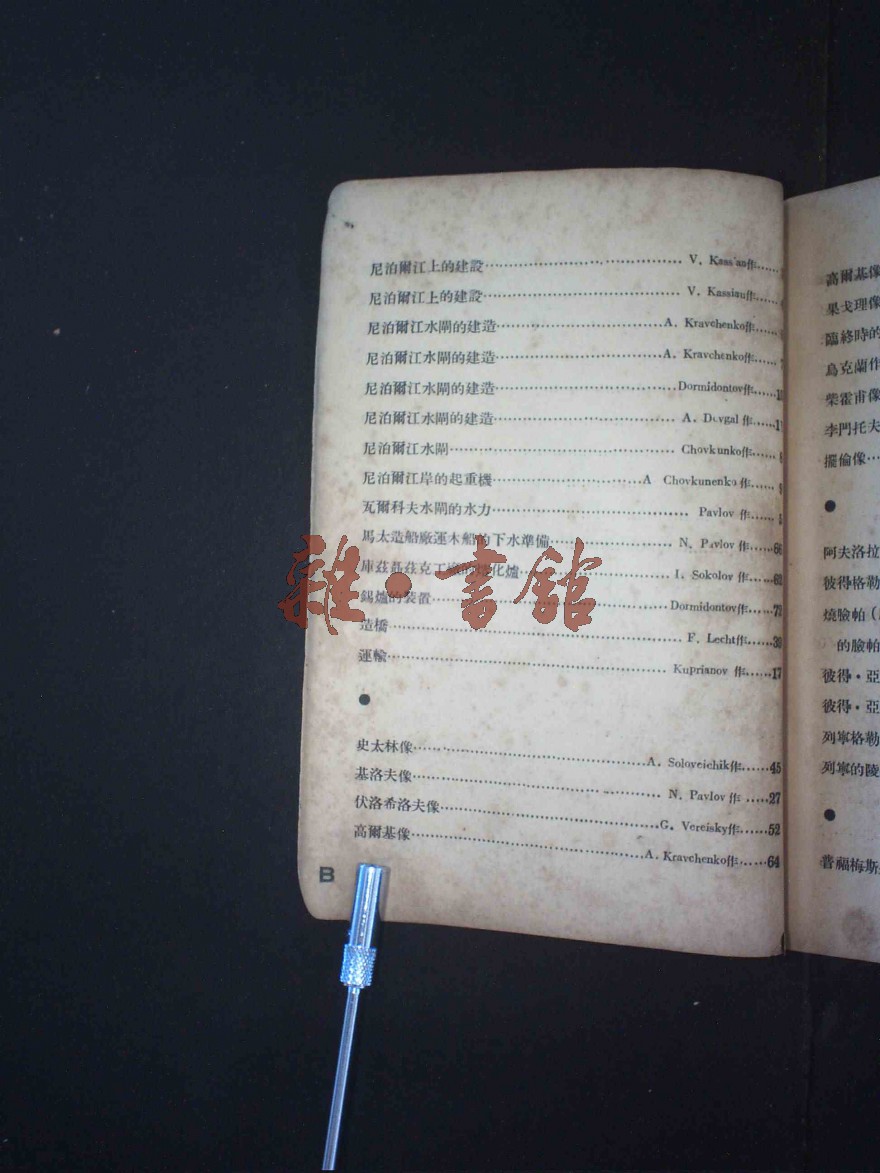 尼泊爾江上的建設 V. Kass'an作
尼泊爾江上的建設 V. Kassiau作
尼泊爾江水閘的建造 A. Kravchenko作
尼泊爾江水閘的建造 A. Kravchenko作
尼泊爾江水閘的建造 Dormidontov作
尼泊爾江水閘的建造 A. 作
尼泊爾江水閘 Chovkunko作
尼泊爾江岸的起重機 A Chovkunenko作
瓦爾科夫水閘的水力 Pavlov 作
馬太造船廠運木船的下水準備 N. Pavlov 作 66
庫茲聶茲克工廠的 化爐 I. Sokolov 作
錫爐的裝置 Dormidontov作
造橋 F. Lecht作
運輸 Kuprianov 作 17
●
史太林像 A. Soloveichik作 45
基洛夫像 N. Pavlov 作 27
伏洛希洛夫像 G. Vereisky作 52
高爾基像 A. Kravchenko作 64
B
高爾基像
果戈理像
臨終時的
烏克蘭作
柴霍甫像
李門托夫
擺倫像
●
阿夫洛拉
彼得格勒
燒臉帕（
的臉帕
彼得・亞
彼得・亞
列寧格勒
列寧的陵
●
普福梅斯
雜・書館